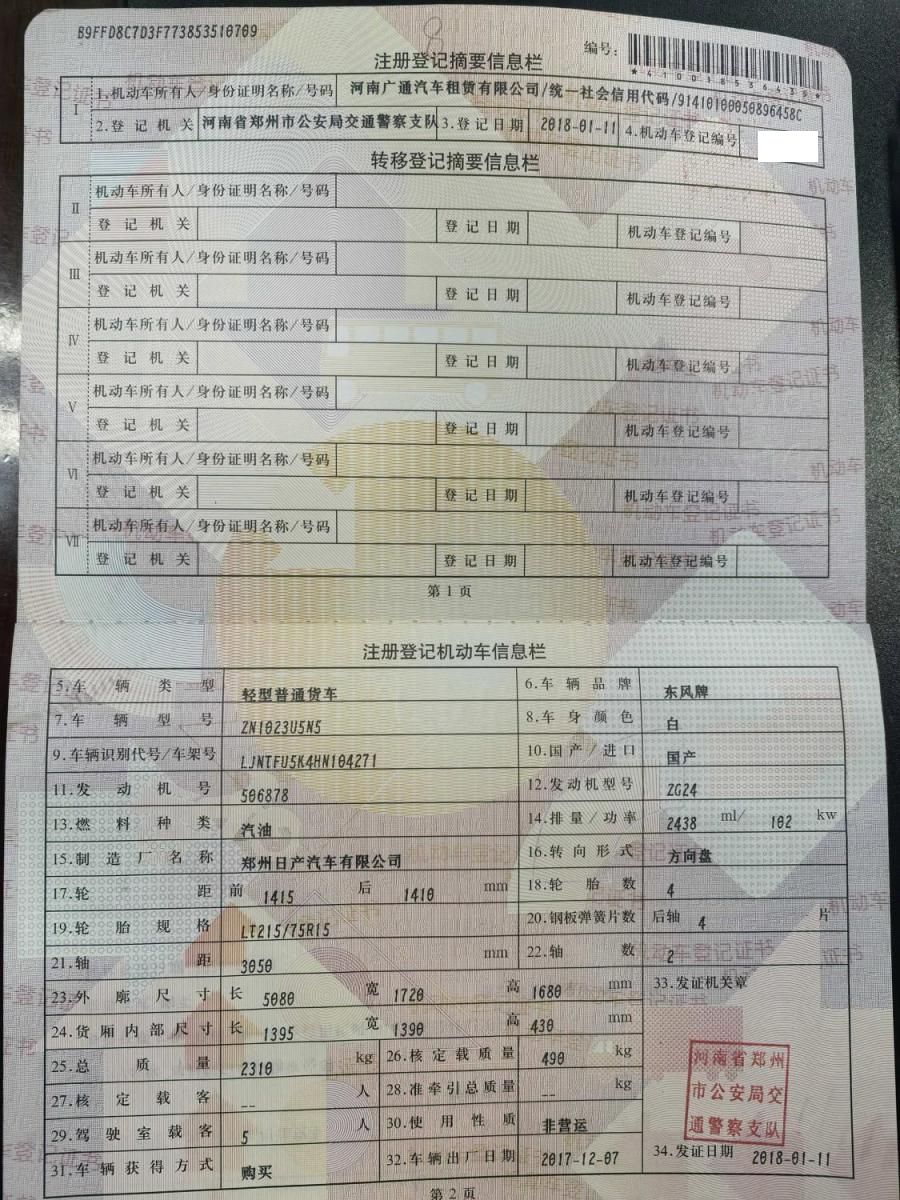 B9FFD8C7D3F773853510709
注册登记摘要信息栏
编号:
*410018536435*
I 1.机动车所有人/身份证明名称/号码 河南广通汽车租赁有限公司/统一社会信用代码/91410100050896458C
2.登记机关 河南省郑州市公安局交通警察支队 3.登记日期 2018-01-11 4.机动车登记编号
转移登记摘要信息栏
II 机动车所有人/身份证明名称/号码
登记机关 登记日期 机动车登记编号
III 机动车所有人/身份证明名称/号码
登记机关 登记日期 机动车登记编号
IV 机动车所有人/身份证明名称/号码
登记机关 登记日期 机动车登记编号
V 机动车所有人/身份证明名称/号码
登记机关 登记日期 机动车登记编号
VI 机动车所有人/身份证明名称/号码
登记机关 登记日期 机动车登记编号
VII 机动车所有人/身份证明名称/号码
登记机关 登记日期 机动车登记编号
第1页
注册登记机动车信息栏
5.车辆类型 轻型普通货车 6.车辆品牌 东风牌
7.车辆型号 ZN1023U5N5 8.车身颜色 白
9.车辆识别代号/车架号 LJNTFU5K4HN104271 10.国产/进口 国产
11.发动机号 506878 12.发动机型号 ZG24
13.燃料种类 汽油 14.排量/功率 2438 ml/ 102 kw
15.制造厂名称 郑州日产汽车有限公司 16.转向形式 方向盘
17.轮距 前 1415 后 1410 mm 18.轮胎数 4
19.轮胎规格 LT215/75R15 20.钢板弹簧片数 后轴 4 片
21.轴距 3050 mm 22.轴数 2
23.外廓尺寸 长 5080 宽 1720 高 1680 mm 33.发证机关章
24.货厢内部尺寸 长 1395 宽 1390 高 430 mm
25.总质量 2310 kg 26.核定载质量 490 kg
27.核定载客 -- 人 28.准牵引总质量 -- kg
29.驾驶室载客 5 人 30.使用性质 非营运
31.车辆获得方式 购买 32.车辆出厂日期 2017-12-07 34.发证日期 2018-01-11
河南省郑州
市公安局交
通警察支队
第2页